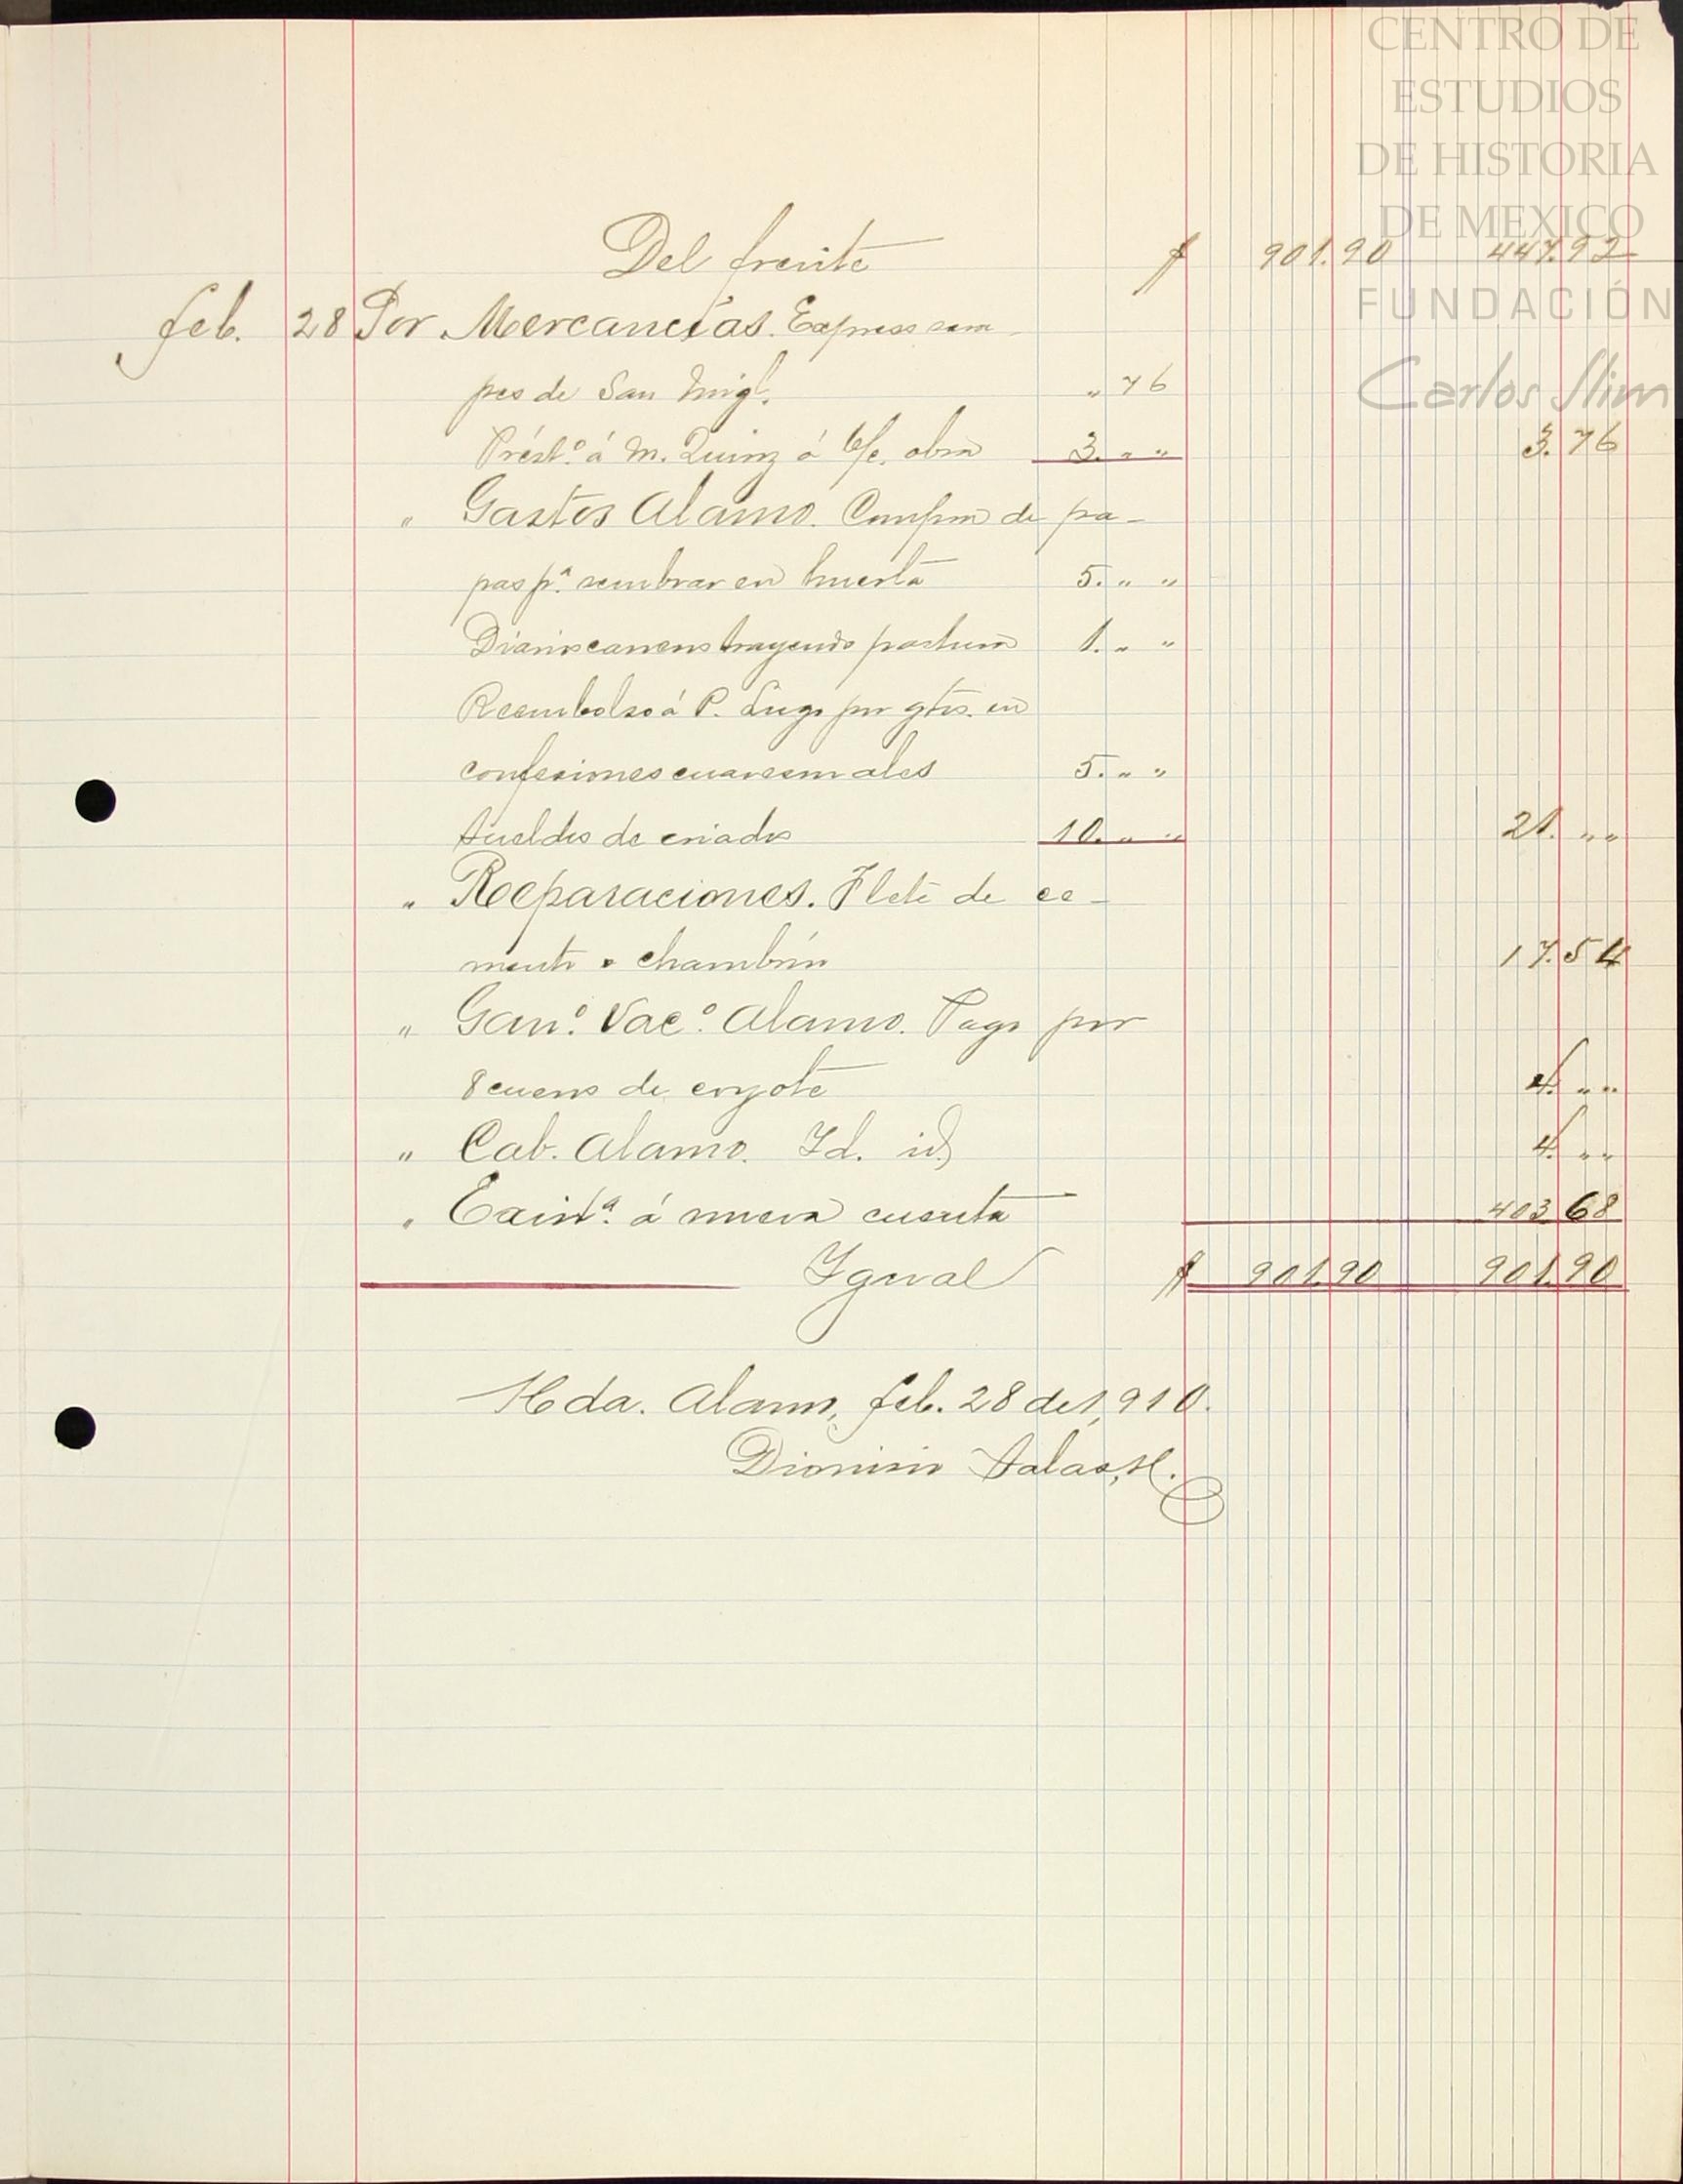 CENTRO DE
ESTUDIOS
DE HISTORIA
DE MEXICO
FUNDACIÓN
Carlos Slim
Del frente $ 901.90 447.92
feb. 28 Por Mercancías. Express zem-
pes de San Migl. " 76
Prést.º á M. Quirz á c/c. obra 3. " " 3.76
" Gastos Alamo. Compra de pa-
pas p.ª sembrar en huerta 5. " "
Diarios carreros trayendo pastura 1. " "
Reembolso á P. Lugo por gtos. en
confesiones cuaresmales 5. " "
Sueldos de criados 10. " " 21. " "
" Reparaciones. Flete de ce-
mento chambrín 17.54
" Gan.º Vac.º Alamo. Pago por
8 cueros de coyote 4. " "
" Cab. Alamo. Id. id. 4. " "
" Exist.ª á nueva cuenta 403 68
Igual $ 901.90 901.90
Hda. Alamo, feb. 28 de 1,910.
Dionisio Salas, H.